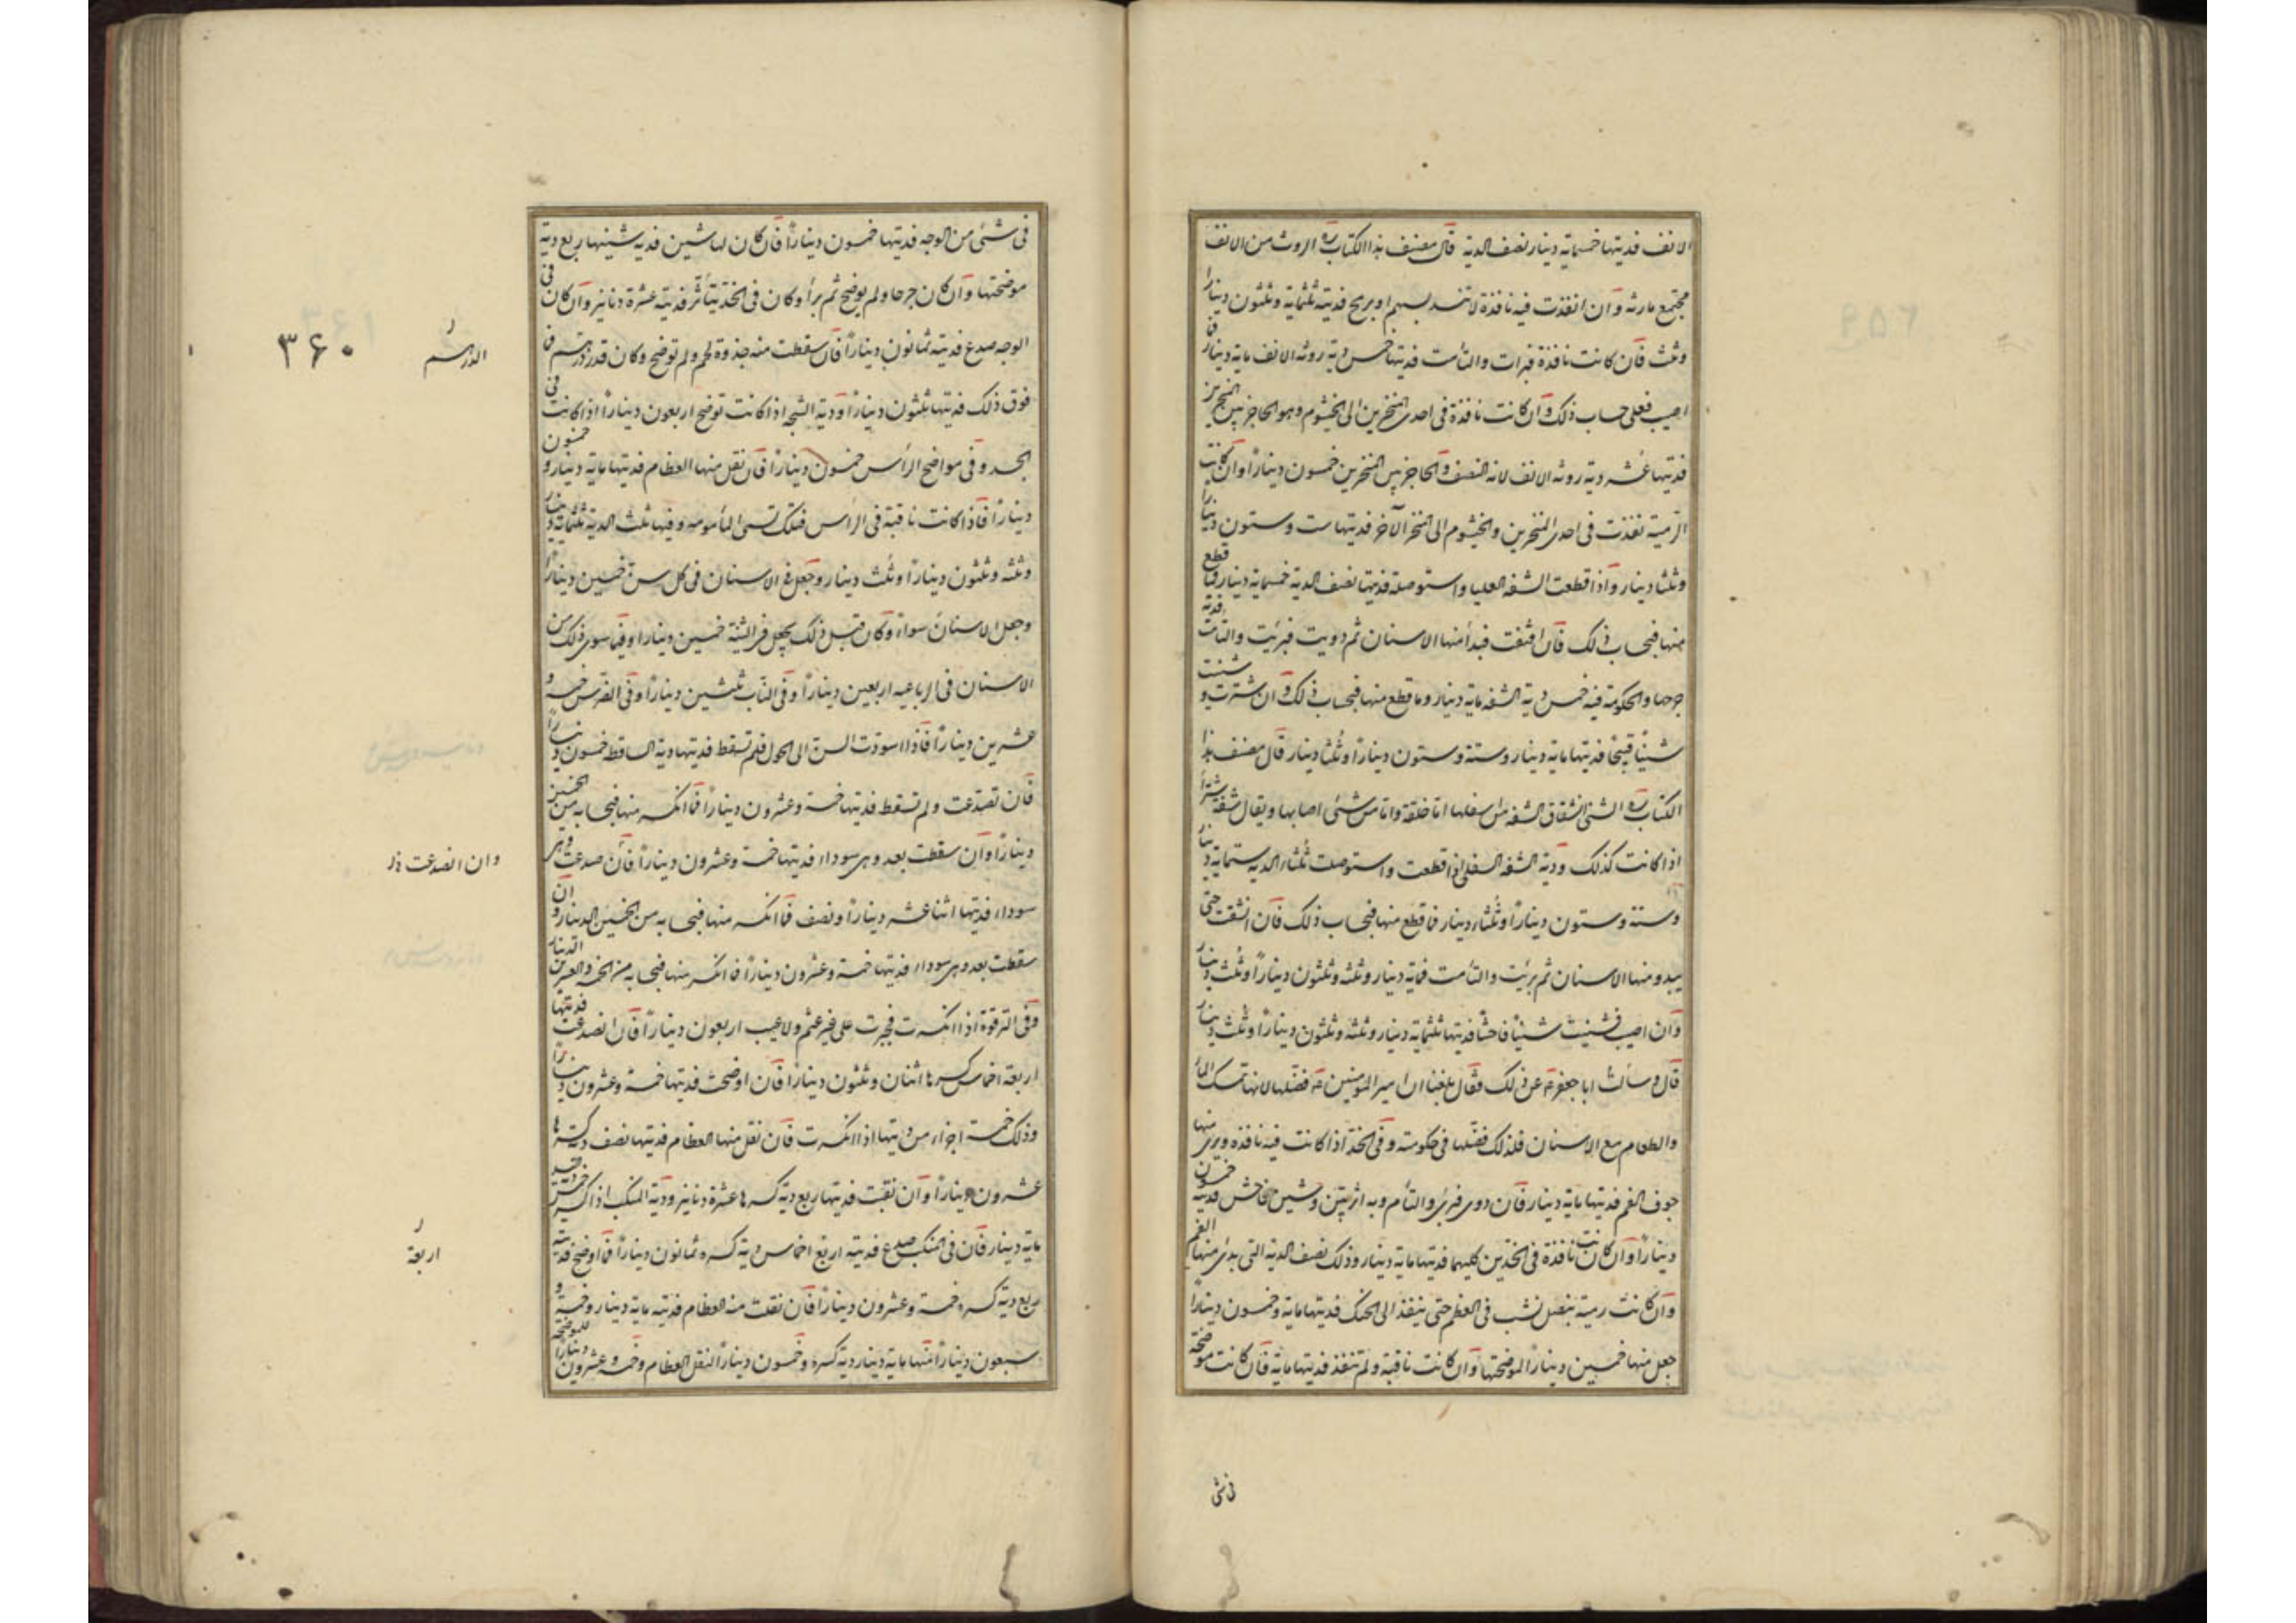 الانف فديتها خمسمایة دینار نصف الدیة قال مصنف هذا الکتاب ره الروثة من الانف
مجتمع مارنه وان انفذت فیه نافذة لا تنسد بسهم او برمح فدیته ثلثمایة وثلثون دینارا
وثلث فان کانت نافذة فبرأت والتأمت فدیتها خمس دیة روثه الانف مایة دینار فما
اصیب فعلی حساب ذلک وان کانت نافذة فی احدی المنخرین الی الخیشوم وهو الحاجز بین المنخرین
فدیتها عشر دیة روثه الانف لانه النصف والحاجز بین المنخرین خمسون دینارا وان کانت
الرمیة نفذت فی احدی المنخرین والخیشوم الی المنخر الآخر فدیتها ست وستون دینارا
وثلثا دینار واذا قطعت الشفه العلیا واستوصلت فدیتها نصف الدیة خمسمایة دینار فما قطع
منها فبحساب ذلک فان انشقت فبدأ منها الاسنان ثم دویت فبرئت والتأمت فدیة
جرحها والحکومة فیه خمس دیة الشفه مایة دینار وما قطع منها فبحساب ذلک وان شترت وشنت
شینا قبیحا فدیتها مایة دینار وستة وستون دینارا وثلثا دینار قال مصنف هذا
الکتاب ره الشتر انشقاق الشفه من اسفلها اما خلقة واما من شئ اصابها ویقال شفة شترا
اذا کانت کذلک ودیة الشفه السفلی اذا قطعت واستوصلت ثلثا الدیة ستمایة دینار
وستة وستون دینارا وثلثا دینار فما قطع منها فبحساب ذلک فان انشقت حتی
یبدو منها الاسنان ثم برئیت والتأمت فمایة دینار وثلثه وثلثون دینارا وثلث دینار
وان اصیب فشینت شینا فاحشا فدیتها ثلثمایة دینار وثلثه وثلثون دینارا وثلث دینار
قال وسألت ابا جعفر ع عن ذلک فقال بلغنا ان امیر المؤمنین ع فضلها لانها تمسک الماء
والطعام مع الاسنان فلذلک فضلها فی حکومته وفی الخد اذا کانت فیه نافذة ویری منها
جوف الفم فدیتها مایة دینار فان دوی فبرئ والتأم وبه اثر بین وشین فاحش فدیته خمسون
دینارا وان کانت نافذة فی الخدین کلیهما فدیتها مایة دینار وذلک نصف الدیة التی بدئ منها الفم
وان کانت رمیة بنصل نشب فی العظم حتی ینفذ الی الحنک فدیتها مایة وخمسون دینارا
جعل منها خمسین دینارا لموضحتها وان کانت ناقبة ولم تنفذ فدیتها مایة فان کانت موضحة
فی شئ
فی شئ من الوجه فدیتها خمسون دینارا فان کان لها شین فدیه شینها ربع دیة
موضحتها وان کان جرحا ولم یوضح ثم برأ وکان فی الخد یتأثر فدیته عشرة دنانیر وان کان فی
الوجه صدع فدیته ثمانون دینارا فان سقطت منه جذوة لحم ولم توضح وکان قدر درهم فما
فوق ذلک فدیتها ثلثون دینارا ودیة الشجه اذا کانت توضح اربعون دینارا اذا کانت فی
الجسد وفی مواضح الرأس خمسون دینارا فان نقل منها العظام فدیتها مایة دینار و خمسون
دینارا فاذا کانت ناقبة فی الرأس فتلک تسمی المأمومه وفیها ثلث الدیة ثلثمایة دینار
وثلثه وثلثون دینارا وثلث دینار وجعل ع الاسنان فی کل سن خمسین دینارا
وجعل الاسنان سواء وکان قبل ذلک یجعل فی الثنیة خمسین دینارا وفیما سوی ذلک من
الاسنان فی الرباعیه اربعین دینارا وفی الناب ثلثین دینارا وفی الضرس خمسه و
عشرین دینارا فاذا اسودت السن الی الحول فلم تسقط فدیتها دیة الساقط خمسون دینارا
فان تصدعت ولم تسقط فدیتها خمسة وعشرون دینارا فما انکسر منها فبحسابه من الخمسین
دینارا وان سقطت بعد وهی سوداء فدیتها خمسة وعشرون دینارا فان صدعت وهی
سوداء فدیتها اثنا عشر دینارا ونصف فما انکسر منها فبحسابه من الخمسین الدینار وان
سقطت بعد وهی سوداء فدیتها خمسة وعشرون دینارا فما انکسر منها فبحسابه من الخمسه والعشرین الدینار
وفی الترقوة اذا انکسرت فجبرت علی غیر عثم ولا عیب اربعون دینارا فان انصدعت فدیتها
اربعة اخماس کسرها اثنان وثلثون دینارا فان اوضحت فدیتها خمسة وعشرون دینارا
وذلک خمسة اجزاء من دیتها اذا انکسرت فان نقل منها العظام فدیتها نصف دیة کسرها
عشرون دینارا وان نقبت فدیتها ربع دیة کسرها عشرة دنانیر ودیة المنکب اذا کسر خمس دیة الید
مایة دینار فان فی المنکب صدع فدیته اربع اخماس دیة کسره ثمانون دینارا فما اوضح فدیته
ربع دیة کسره خمسة وعشرون دینارا فان نقلت منه العظام فدیته مایة دینار وخمسة و
سبعون دینارا منها مایة دینار دیة کسره وخمسون دینارا لنقل العظام وخمسه وعشرون دینارا للموضحه
۳۶۰
الدرهم
وان انصدعت
اربعة